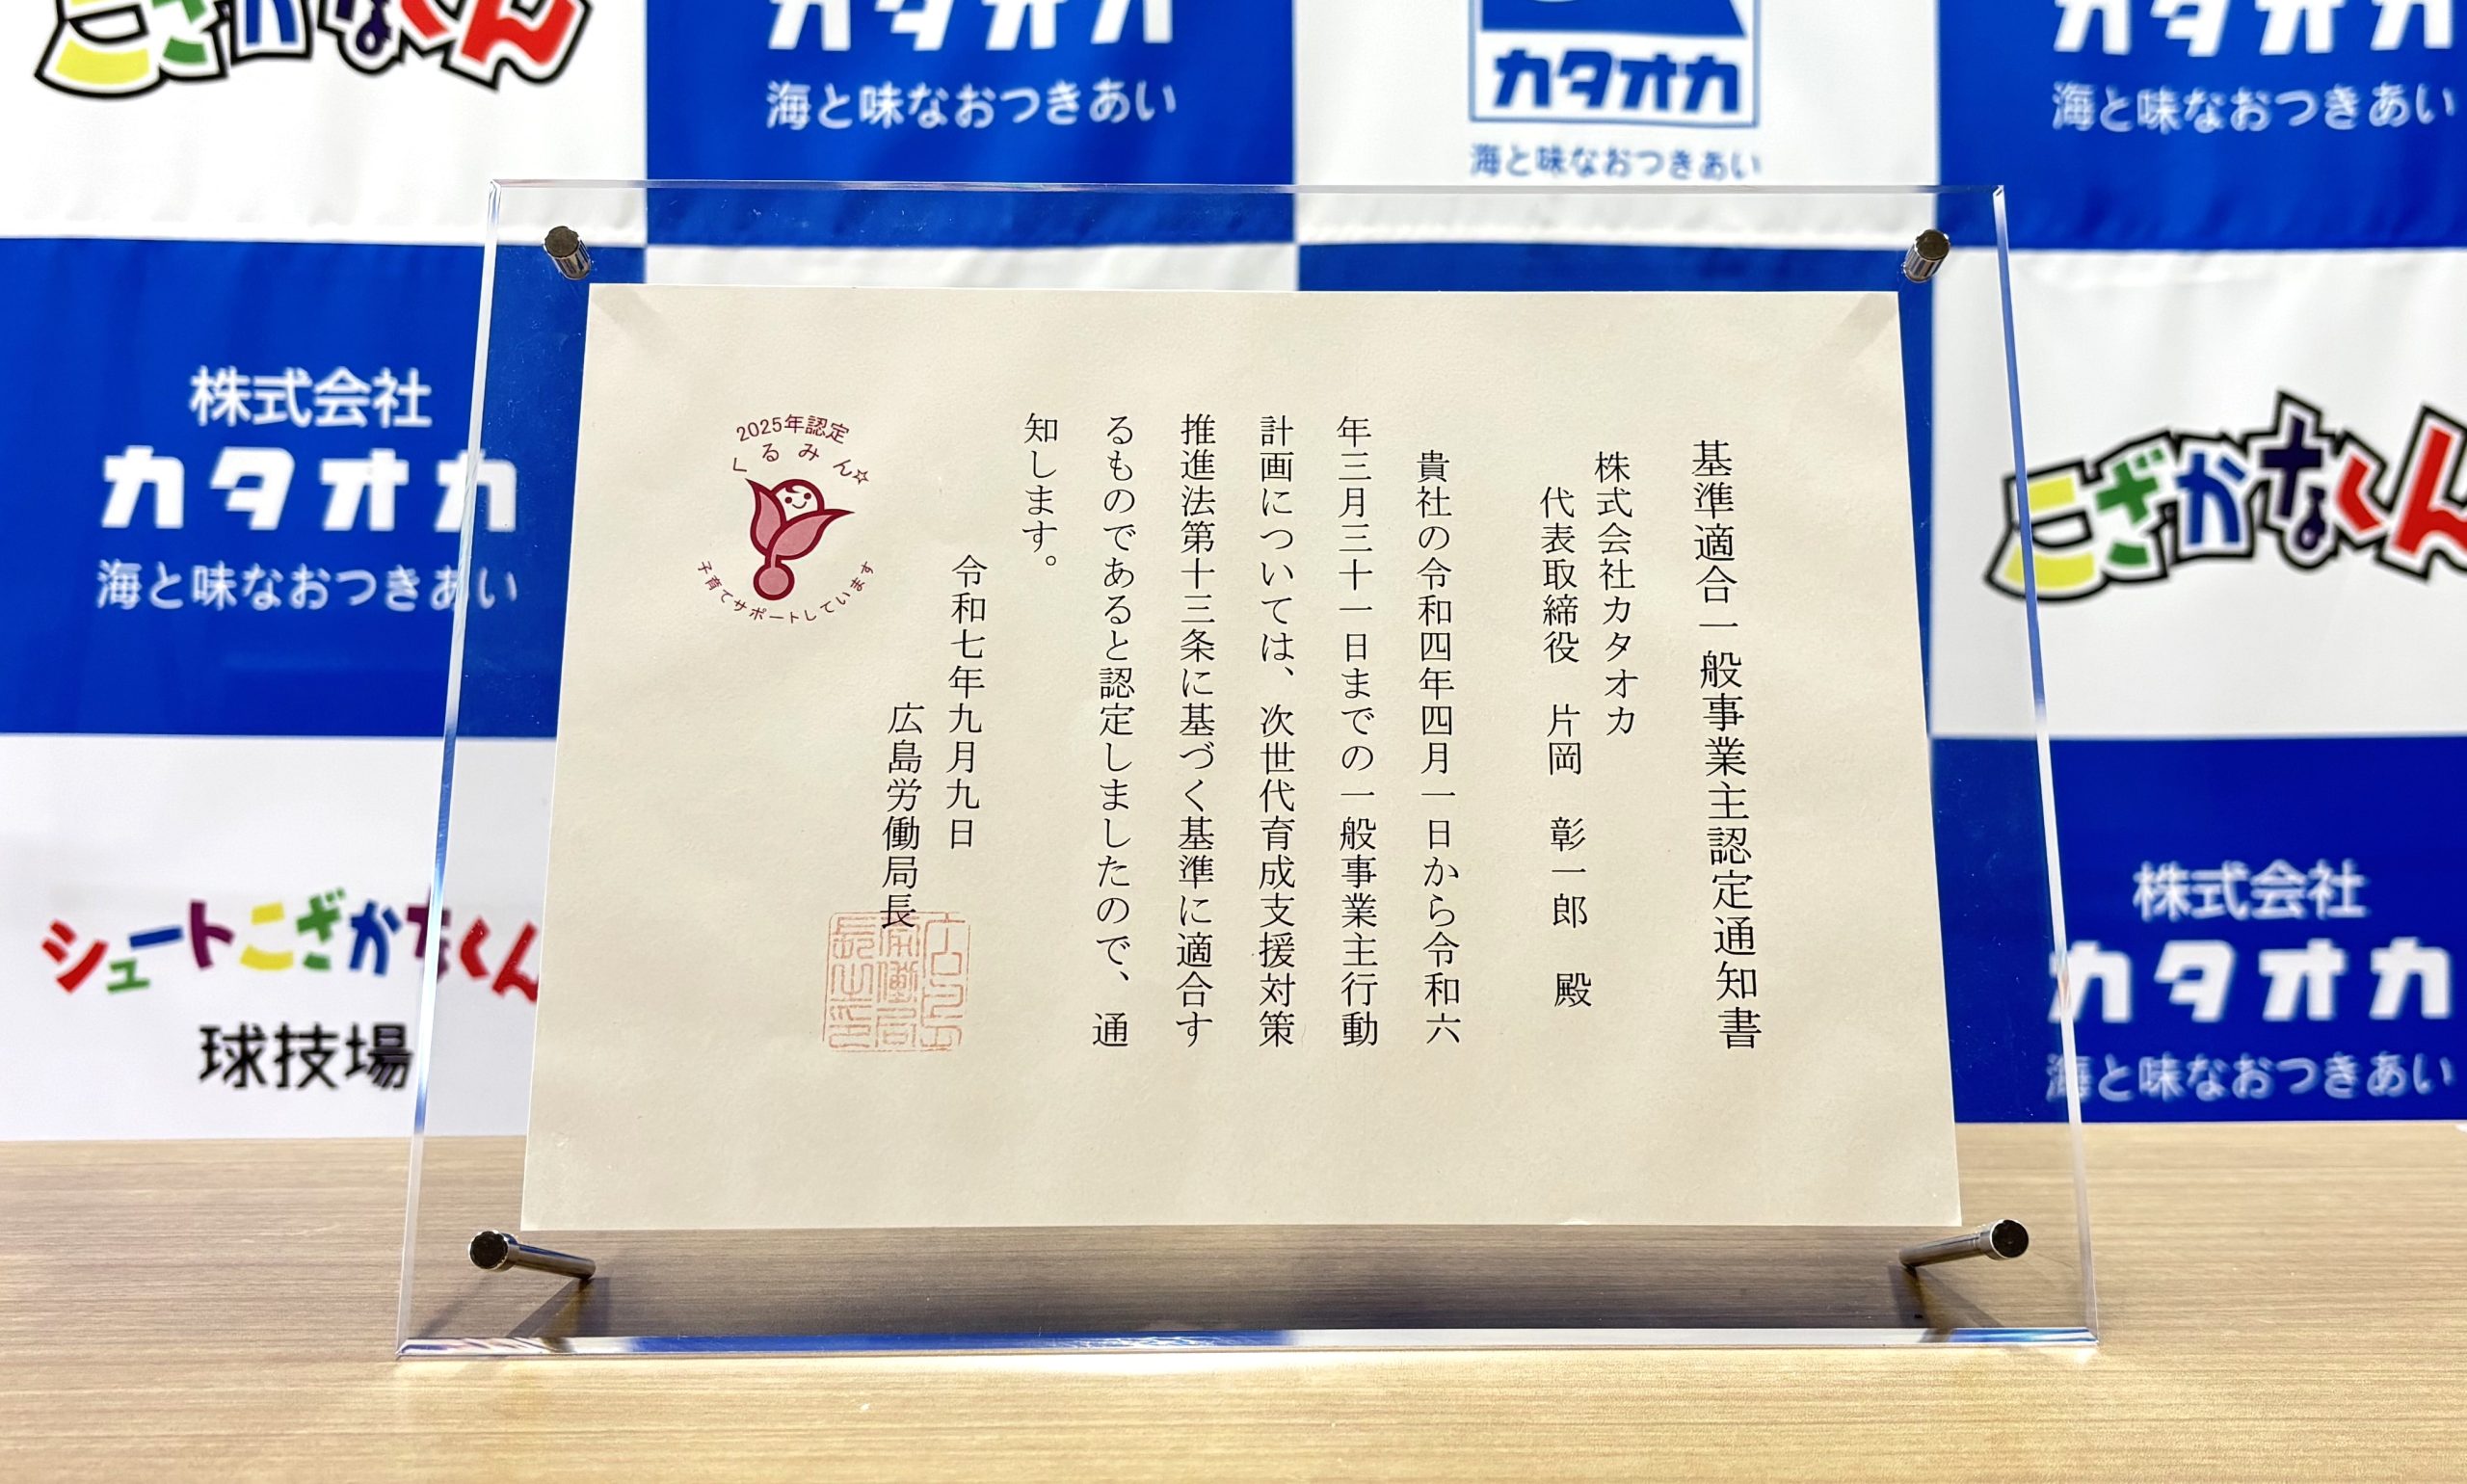 こざかなくん
カタオカ
海と味なおつきあい
カタオカ
海と味なおつきあい
カタオカ
海と味なおつきあい
株式会社
カタオカ
海と味なおつきあい
こざかなくん
シュートこざかなくん
球技場
株式会社
カタオカ
海と味なおつきあい
基準適合一般事業主認定通知書
株式会社カタオカ
代表取締役 片岡 彰一郎 殿
貴社の令和四年四月一日から令和六
年三月三十一日までの一般事業主行動
計画については、次世代育成支援対策
推進法第十三条に基づく基準に適合す
るものであると認定しましたので、通
知します。
令和七年九月九日
広島労働局長
広島労働局長之印
2025年認定
くるみん☆
子育てサポートしています